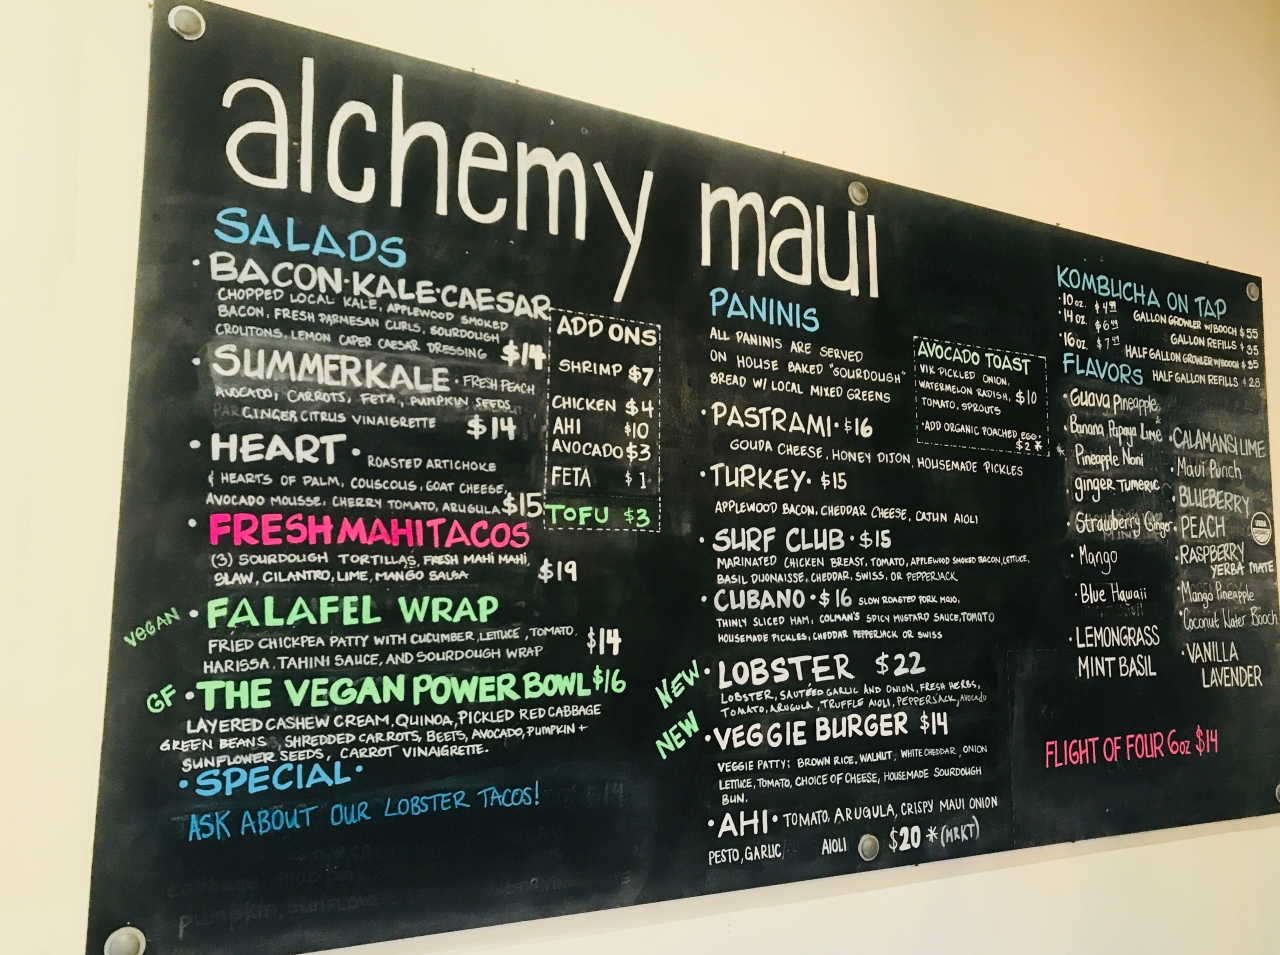 alchemy maui
SALADS
· BACON·KALE·CAESAR
CHOPPED LOCAL KALE, APPLEWOOD SMOKED
BACON, FRESH PARMESAN CURLS, SOURDOUGH
CROUTONS, LEMON CAPER CAESAR DRESSING $14
· SUMMERKALE · FRESH PEACH
AVOCADO, CARROTS, FETA, PUMPKIN SEEDS
GINGER CITRUS VINAIGRETTE $14
· HEART · ROASTED ARTICHOKE
& HEARTS OF PALM, COUSCOUS, GOAT CHEESE,
AVOCADO MOUSSE, CHERRY TOMATO, ARUGULA $15
· FRESH MAHI TACOS
(3) SOURDOUGH TORTILLAS, FRESH MAHI MAHI,
SLAW, CILANTRO, LIME, MANGO SALSA $19
VEGAN · FALAFEL WRAP
FRIED CHICKPEA PATTY WITH CUCUMBER, LETTUCE, TOMATO,
HARISSA, TAHINI SAUCE, AND SOURDOUGH WRAP $14
GF · THE VEGAN POWER BOWL $16
LAYERED CASHEW CREAM, QUINOA, PICKLED RED CABBAGE
GREEN BEANS, SHREDDED CARROTS, BEETS, AVOCADO, PUMPKIN +
SUNFLOWER SEEDS, CARROT VINAIGRETTE.
· SPECIAL ·
ASK ABOUT OUR LOBSTER TACOS!
ADD ONS
SHRIMP $7
CHICKEN $4
AHI $10
AVOCADO $3
FETA $1
TOFU $3
PANINIS
ALL PANINIS ARE SERVED
ON HOUSE BAKED "SOURDOUGH"
BREAD W/ LOCAL MIXED GREENS
· PASTRAMI · $16
GOUDA CHEESE, HONEY DIJON, HOUSEMADE PICKLES
· TURKEY · $15
APPLEWOOD BACON, CHEDDAR CHEESE, CAJUN AIOLI
· SURF CLUB · $15
MARINATED CHICKEN BREAST, TOMATO, APPLEWOOD SMOKED BACON, LETTUCE,
BASIL DIJONAISSE, CHEDDAR, SWISS, OR PEPPERJACK
· CUBANO · $16 SLOW ROASTED PORK MOJO,
THINLY SLICED HAM, COLMAN'S SPICY MUSTARD SAUCE, TOMATO
HOUSEMADE PICKLES, CHEDDAR PEPPERJACK OR SWISS
NEW · LOBSTER $22
LOBSTER, SAUTÉED GARLIC AND ONION, FRESH HERBS,
TOMATO, ARUGULA, TRUFFLE AIOLI, PEPPERJACK, Avocado
NEW · VEGGIE BURGER $14
VEGGIE PATTY: BROWN RICE, WALNUT, WHITE CHEDDAR, ONION
LETTUCE, TOMATO, CHOICE OF CHEESE, HOUSEMADE SOURDOUGH
BUN.
· AHI · TOMATO, ARUGULA, CRISPY MAUI ONION
PESTO, GARLIC AIOLI $20 * (MRKT)
AVOCADO TOAST
W/K PICKLED ONION,
WATERMELON RADISH, $10
TOMATO, SPROUTS
· ADD ORGANIC POACHED EGG·
$2 *
KOMBUCHA ON TAP
· 10 oz. $4.99
· 14 oz. $6.49
· 16 oz.
GALLON GROWLER W/BOOCH $55
GALLON REFILLS $35
HALF GALLON GROWLER W/BOOCH
HALF GALLON REFILLS $28
FLAVORS
· Guava Pineapple
· Banana Papaya Lime
* Pineapple Noni
ginger Tumeric
· Strawberry Ginger
· Mango
· Blue Hawaii
· LEMONGRASS
MINT BASIL
· CALAMANSI LIME
· Maui Punch
· BLUEBERRY
· PEACH
· RASPBERRY
YERBA MATE
· Mango Pineapple
· Coconut Water Booch
· VANILLA
LAVENDER
FLIGHT OF FOUR 6oz $14